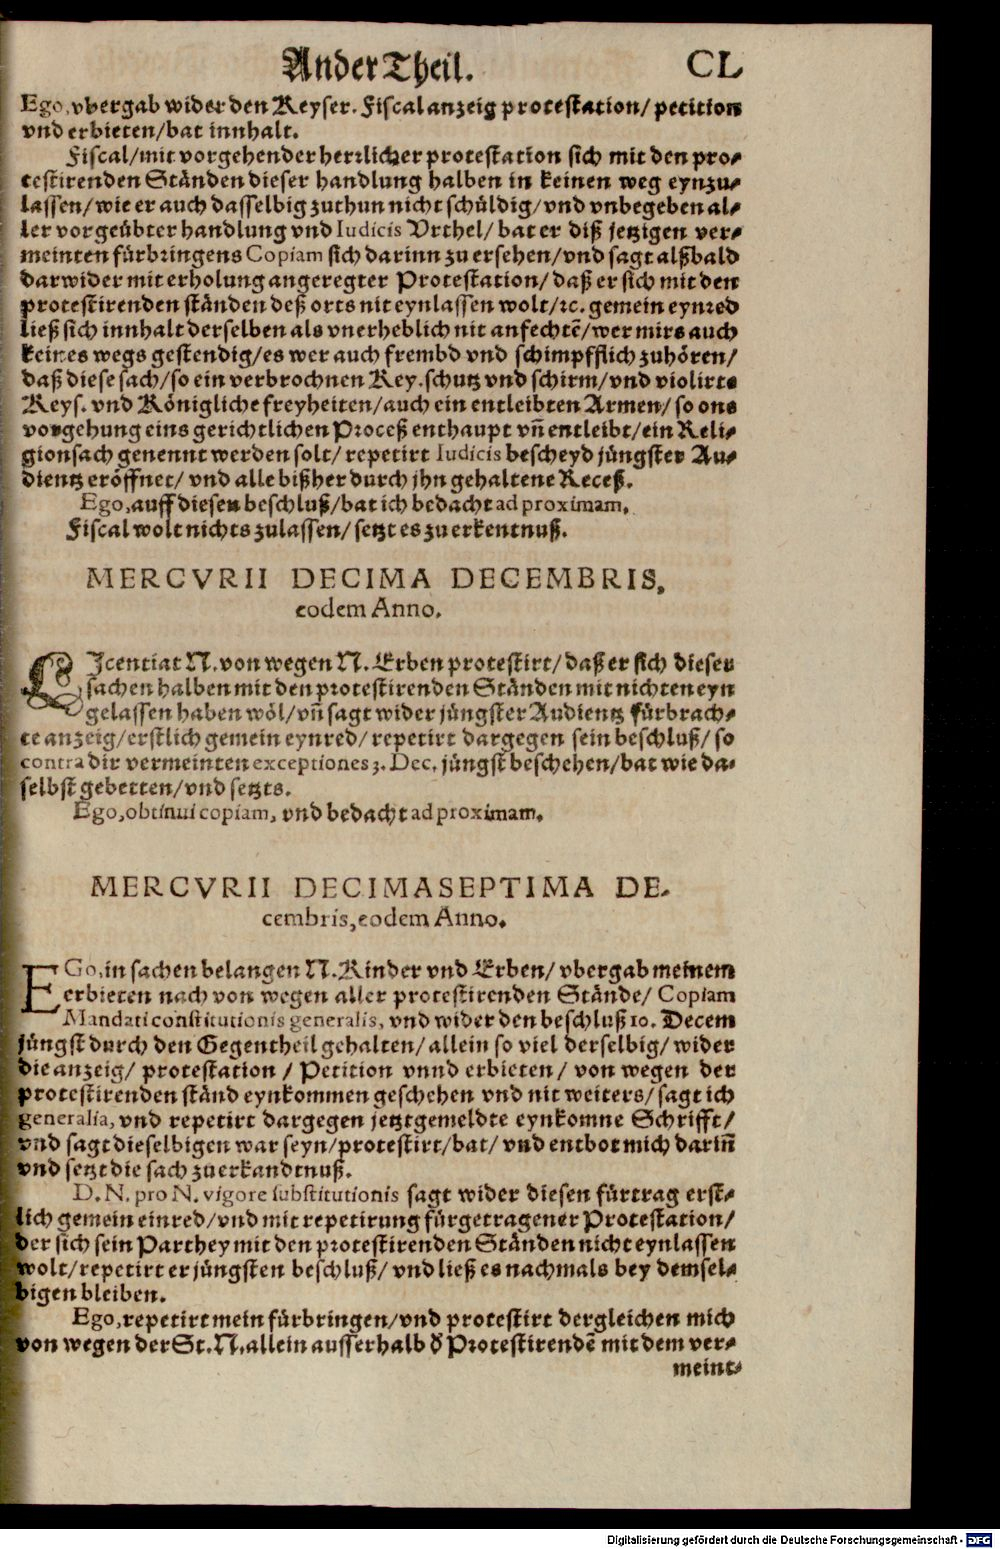 Ander Theil. CL
Ego, vbergab wider den Keyser. Fiscal anzeig protestation/ petition
vnd erbieten/ bat innhalt.
Fiscal/ mit vorgehender herrlicher protestation sich mit den pro-
testirenden Ständen dieser handlung halben in keinen weg eynzu-
lassen/ wie er auch dasselbig zuthun nicht schüldig/ vnd vnbegeben al-
ler vorgeübter handlung vnd Iudicis Vrthel/ bat er diß jetzigen ver-
meinten fürbringens Copiam sich darinn zu ersehen/ vnd sagt alßbald
darwider mit erholung angeregter Protestation/ daß er sich mit den
protestirenden ständen deß orts nit eynlassen wolt/ ꝛc. gemein eynred
ließ sich innhalt derselben als vnerheblich nit anfechtẽ/ wer mirs auch
keines wegs gestendig/ es wer auch frembd vnd schimpfflich zuhören/
daß diese sach/ so ein verbrochnen Key. schutz vnd schirm/ vnd violirte
Keys. vnd Königliche freyheiten/ auch ein entleibten Armen/ so ons
vorgehung eins gerichtlichen Proceß enthaupt vñ entleibt/ ein Reli-
gionsach genennt werden solt/ repetirt Iudicis bescheyd jüngster Au-
dientz eröffnet/ vnd alle bißher durch jhn gehaltene Receß.
Ego, auff diesen beschluß/ bat ich bedacht ad proximam.
Fiscal wolt nichts zulassen/ setzt es zu erkentnuß.
MERCVRII DECIMA DECEMBRIS,
eodem Anno.
LJcentiat N. von wegen N. Erben protestirt/ daß er sich dieser
sachen halben mit den protestirenden Ständen mit nichten eyn
gelassen haben wöl/ vñ sagt wider jüngster Audientz fürbrach-
te anzeig/ erstlich gemein eynred/ repetirt dargegen sein beschluß/ so
contra dir vermeinten exceptiones 3. Dec. jüngst beschehen/ bat wie da-
selbst gebetten/ vnd setzts.
Ego, obtinui copiam, vnd bedacht ad proximam.
MERCVRII DECIMASEPTIMA DE-
cembris, eodem Anno.
EGo, in sachen belangen N. Kinder vnd Erben/ vbergab meinem
erbieten nach von wegen aller protestirenden Stände/ Copiam
Mandati constitutionis generalis, vnd wider den beschluß 10. Decem
jüngst durch den Gegentheil gehalten/ allein so viel derselbig/ wider
die anzeig/ protestation / Petition vnnd erbieten/ von wegen der
protestirenden ständ eynkommen geschehen vnd nit weiters/ sagt ich
generalia, vnd repetirt dargegen jetztgemeldte eynkomne Schrifft/
vnd sagt dieselbigen war seyn/ protestirt/ bat/ vnd entbot mich dariñ
vnd setzt die sach zu erkandtnuß.
D. N. pro N. vigore substitutionis sagt wider diesen fürtrag erst-
lich gemein einred/ vnd mit repetirung fürgetragener Protestation/
der sich sein Parthey mit den protestirenden Ständen nicht eynlassen
wolt/ repetirt er jüngsten beschluß/ vnd ließ es nachmals bey demsel-
bigen bleiben.
Ego, repetirt mein fürbringen/ vnd protestirt dergleichen mich
von wegen der St. N. allein ausserhalb d' Protestirendẽ mit dem ver-
meint-
Digitalisierung gefördert durch die Deutsche Forschungsgemeinschaft - DFG